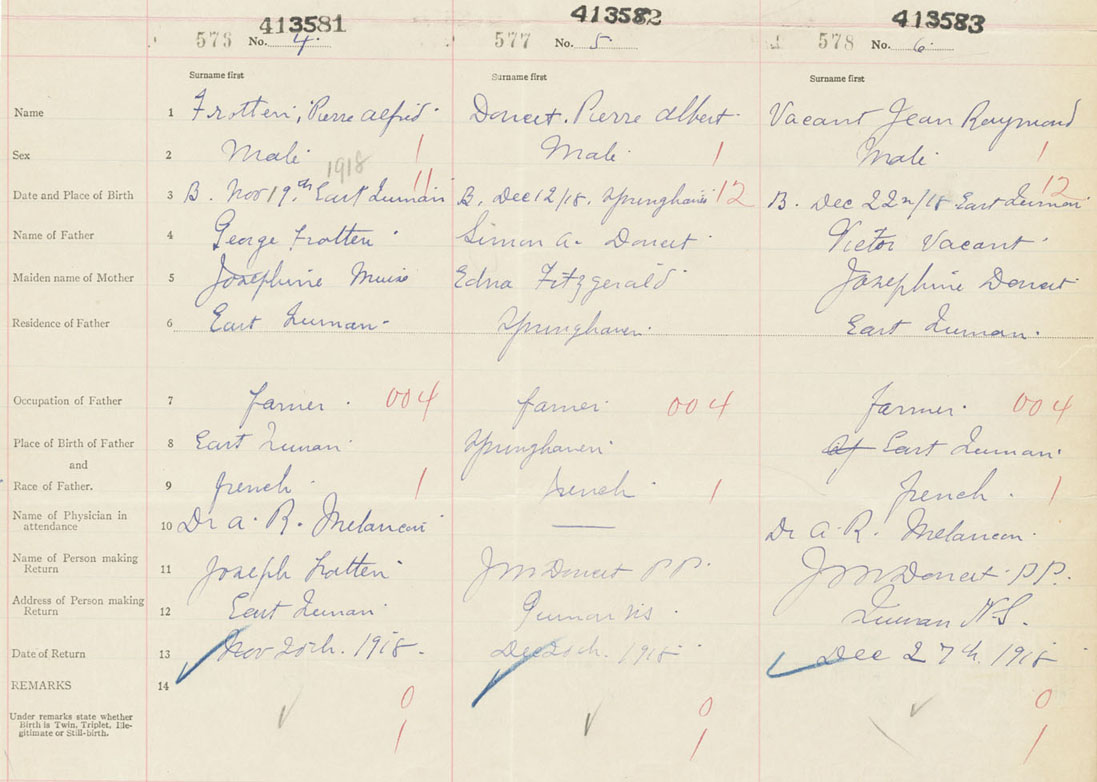 413581 413582 413583
573 No. 4. 577 No. 5 578 No. 6
Surname first Surname first Surname first
Name 1 Frotten, Pierre alfred Doucet. Pierre albert. Vacant Jean Raymond
Sex 2 Male 1 Male 1 Male 1
1918
Date and Place of Birth 3 B. Nov 19th East 11 B. Dec 12/18. Springhaven 12 B. Dec 22n/18 East 12
Name of Father 4 George Frotten Simon a. Doucet Victor Vacant
Maiden name of Mother 5 Josephine Muise Edna Fitzgerald Josephine Doucet
Residence of Father 6 East Springhaven East
Occupation of Father 7 farmer. 004 farmer 004 farmer. 004
Place of Birth of Father 8 East Springhaven East
and
Race of Father. 9 french. 1 french 1 french. 1
Name of Physician in
attendance 10 Dr a. R. Melancon — Dr a. R. Melancon.
Name of Person making
Return 11 Joseph J M Doucet P P. J M Doucet P.P.
Address of Person making
Return 12 East NS N.S.
Date of Return 13 Nov 20th. 1918. Dec 20th. 1918 Dec 27th. 1918
REMARKS 14 0 0 0
Under remarks state whether
Birth is Twin, Triplet, Ille-
gitimate or Still-birth. 1 1 1